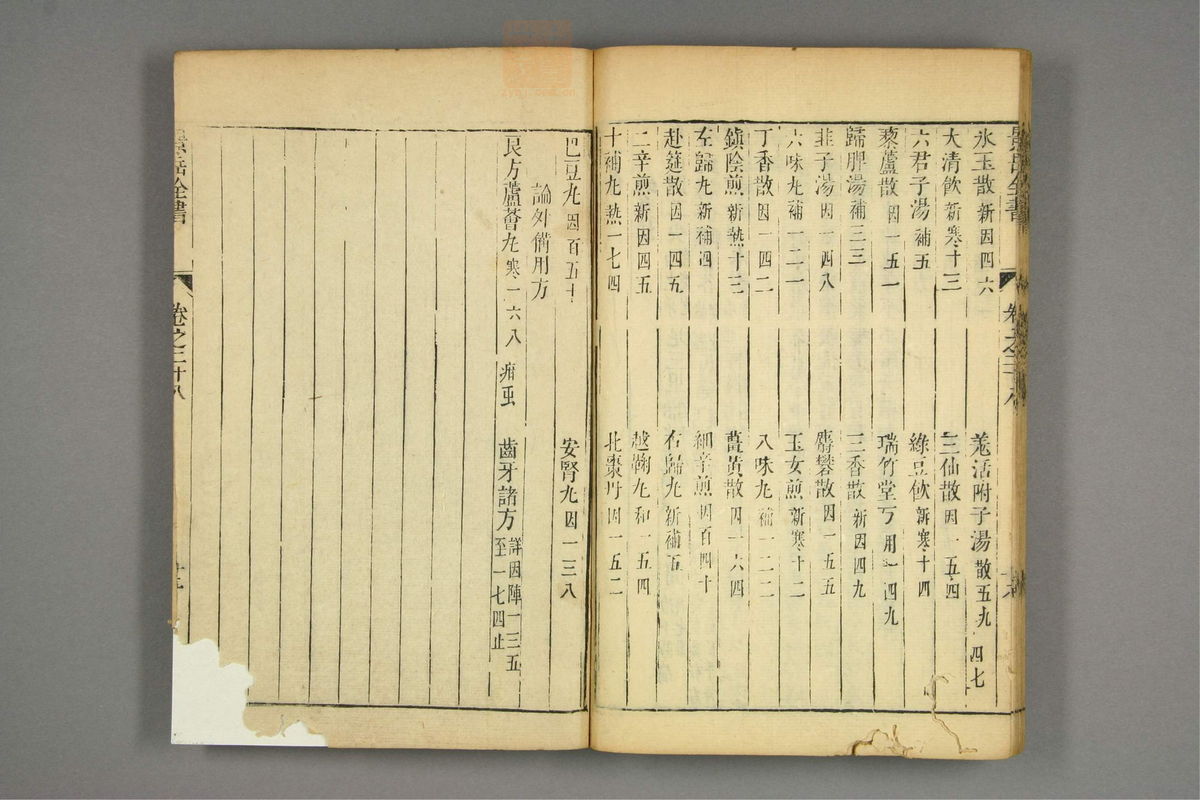 景岳全書 卷之二十八
氷玉散 新因四六 羗活附子湯 散五九 四七
大清飲 新寒十三 三仙散 因一五四
六君子湯 補五 綠豆飲 新寒十四
藜蘆散 因一五一 瑞竹堂方 用一四九
歸脾湯 補三三 三香散 新因四九
韭子湯 因一四八 麝礬散 因一五五
六味丸 補一二一 玉女煎 新寒十二
丁香散 因一四二 八味丸 補一二二
鎮陰煎 新熱十三 薑黃散 因一六四
左歸丸 新補四 細辛煎 因百四十
赴筵散 因一四五 右歸丸 新補五
二辛煎 新因四五 越鞠丸 和一五四
十補丸 熱一七四 北棗丹 因一五二
巴豆丸 因百五十 安腎丸 因一三八
論外備用方
良方蘆薈丸 寒一六八 疳虫 齒牙諸方 詳因陣一三五至一七四止
景岳全書 卷之二十八